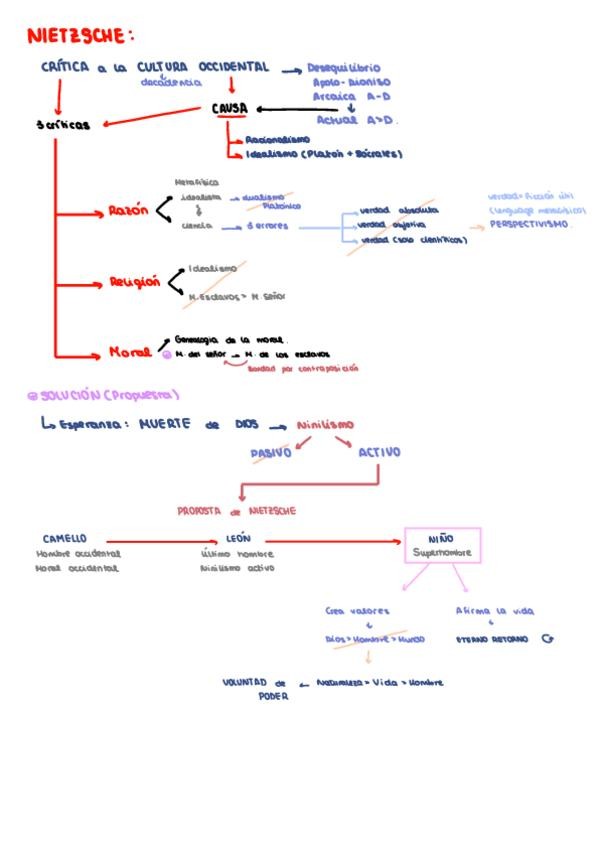 NIETZSCHE:
CRÍTICA a la CULTURA OCCIDENTAL → Desequilibrio
decadencia
Apolo-Dioniso
Arcaica A-D
Actual A>D.
CAUSA
3 críticas
Racionalismo
Idealismo (Platón + Sócrates)
Metafísica
idealista → dualismo
Platónico
Razón
ciencia → 3 errores
verdad absoluta
verdad objetiva
verdad (solo científicas)
verdad=ficción útil
(lenguage metafórico)
PERSPECTIVISMO.
Idealismo
Religión
M. Esclavos > M. Señor
Genealogía de la moral.
Moral
M. del señor → M. de los esclavos
Bondad por contraposición
SOLUCIÓN (Propuesta)
↳ Esperanza: MUERTE de DIOS → Ninilismo
PASIVO
ACTIVO
PROPOSTA de NIETZSCHE
CAMELLO
LEÓN
NIÑO
Hombre occidental
Último hombre
Superhombre
Moral occidental
Ninilismo activo
Crea valores
Afirma la vida
Dios > Hombre > Mundo
ETERNO RETORNO
VOLUNTAD de ← Naturaleza > Vida > Hombre
PODER